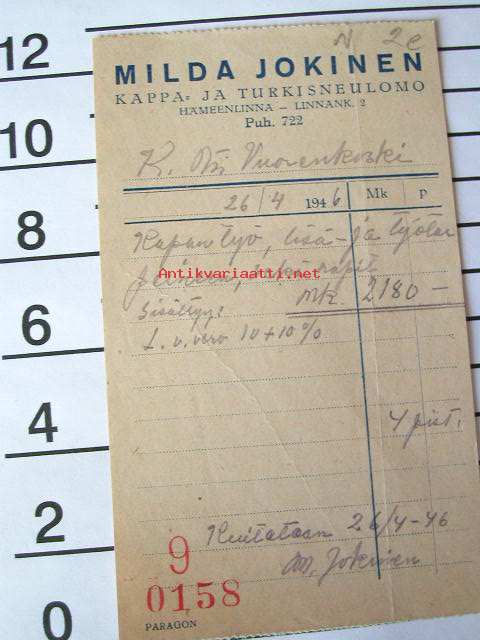 N 2e
MILDA JOKINEN
KAPPA= JA TURKISNEULOMO
HÄMEENLINNA – LINNANK. 2
Puh. 722
K. Vuorenkoski
26/4 1946 Mk p
Kapan työ, lisä- ja työtar
Antikvariaatti.net
Sisältyy: Mk. 2180 –
L. v. vero 10+10%
4 pist.
Kuitataan 26/4-46
M. Jokinen
9
0158
PARAGON
12
10
8
6
4
2
0